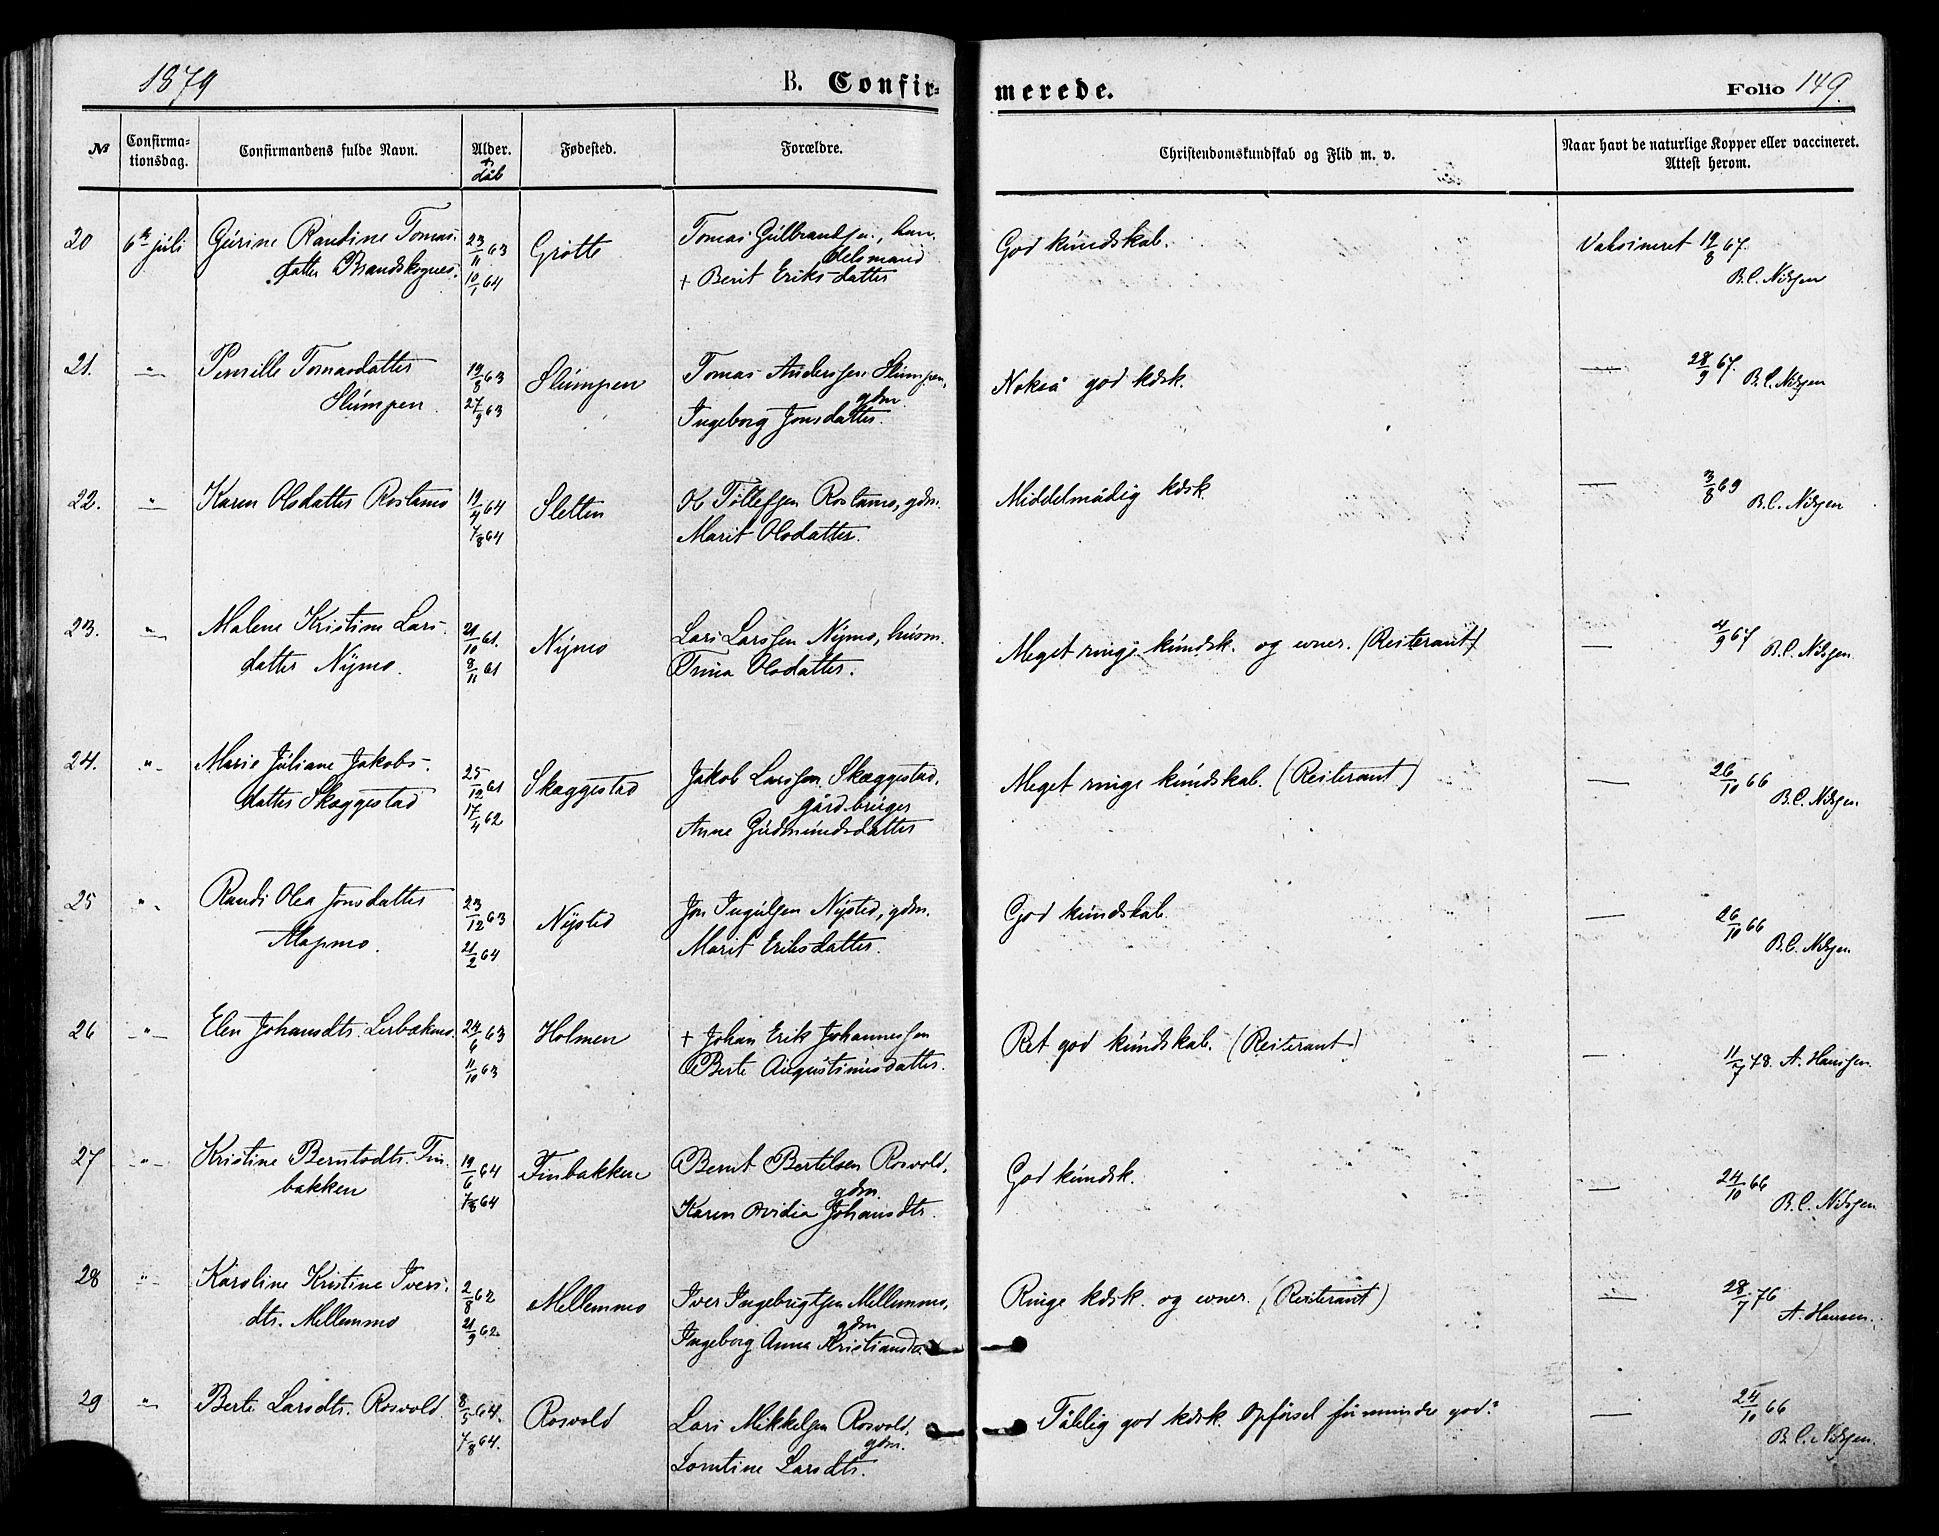 1879
B. Confir-
merede.
Folio 149.
No
Confirma-
tionsdag.
Confirmandens fulde Navn.
Alder.
+
dåb
Fødested.
Forældre.
Christendomskundskab og Flid m. v.
Naar havt de naturlige Kopper eller vaccineret.
Attest herom.
20 6te juli Gurine Randine Tomas-
datter Brandskognes.
23/11 63
10/1 64
Grötte
Tomas Gulbrandsen, han-
delsmand
+ Berit Eriksdatter
God kundskab.
Vaksineret 19/8 67.
B.C. Nilsen
21. " Pernille Tomasdatter
Slumpen.
19/8 63
27/9 63
Slumpen
Tomas Anderssen Slumpen,
gdm.
Ingeborg Jonsdatter.
Nokså god kdsk.
28/9 67. B.C. Nilsen
22. " Karen Olsdatter Rostamo
19/4 64
7/8 64
Sletten
Ole Tollefsen Rostamo, gdm.
Marit Olsdatter.
Middelmådig kdsk.
3/8 69
B.C. Nilsen
23. " Malene Kristine Lars-
datter Nymo.
21/10 61.
8/11 61
Nymo
Lars Larssen Nymo, husm.
Trina Olsdatter.
Meget ringe kundsk. og evner. (Reiterant)
4/9 67 B.C. Nilsen
24. " Marie Juliane Jakobs-
datter Skæggestad
25/12 61
17/4 62
Skæggestad
Jakob Larssen Skæggestad,
gårdbruger
Anne Gudmundsdatter
Meget ringe kundskab. (Reiterant)
26/10 66
B.C. Nilsen
25 " Randi Olea Jonsdatter
Alapmo.
23/12 63
21/2 64
Nysted
Jon Ingulsen Nysted, gdm.
Marit Eriksdatter.
God kundskab
26/10 66
B.C. Nilsen
26 " Elen Johansdtr. Lerbækmo.
24/6 63
11/10 63
Holmen
+ Johan Erik Johannessen
Berte Augustinusdatter.
Ret god kundskab. (Reiterant)
11/7 78. A. Hanssen.
27 " Kristine Berntsdtr. Fin-
bakken
19/6 64
7/8 64
Finbakken
Bernt Bertelsen Rosvold,
gdm.
Karen Ovidia Johansdtr.
God kundsk.
24/10 66
B.C. Nilsen
28 " Karoline Kristine Ivers-
dtr. Mellemmo
2/8 62
21/9 62.
Mellemmo
Iver Ingebrigtsen Mellemmo,
gdm
Ingeborg Anna Kristiansdtr.
Ringe kdsk. og evner. (Reiterant)
28/7 76
A. Hansen.
29 " Berte Larsdtr. Rosvold.
8/5 64.
7/8 64.
Rosvold
Lars Mikkelsen Rosvold,
gdm.
Lorntine Larsdtr.
Tålelig god kdsk. Opførsel mindre god.
24/10 66
B.C. Nilsen.